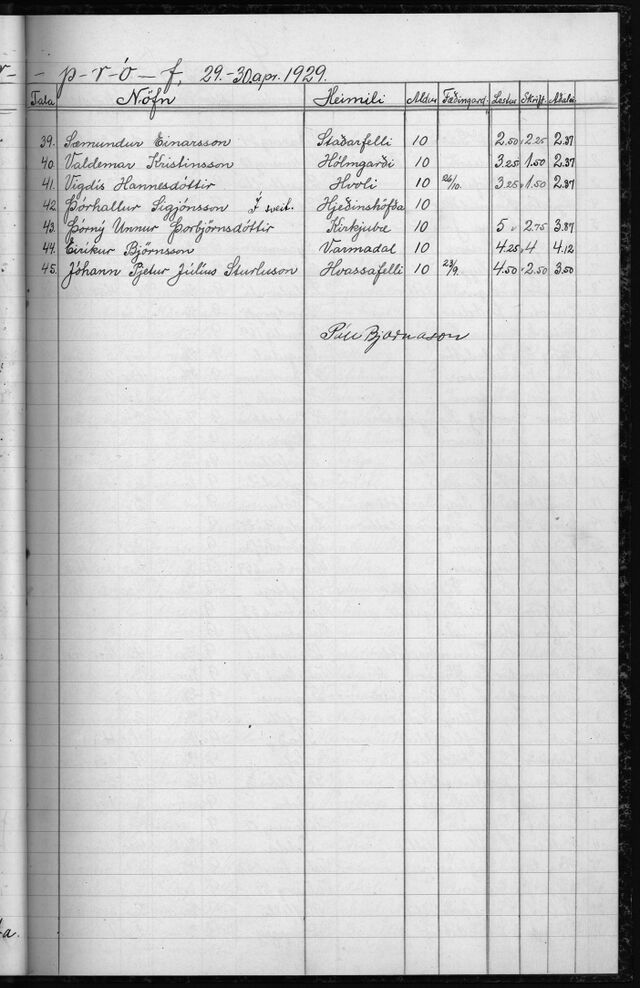 - p-r-ó-f, 29.-30. apr. 1929.
Tala Nöfn Heimili Aldur Fæðingard. Lestur Skrift Aðale.
39. Sæmundur Einarsson Staðarfelli 10 2.50 2.25 2.37
40. Valdemar Kristinsson Hólmgarði 10 3.25 1.50 2.37
41. Vigdís Hannesdóttir Hvoli 10 26/10. 3.25 1.50 2.37
42. Þórhallur Sigjónsson Í sveit. Hjeðinshöfða 10
43. Þórný Unnur Þorbjörnsdóttir Kirkjubæ 10 5 2.75 3.87
44. Eiríkur Björnsson Varmadal 10 4.25 4 4.12
45. Jóhann Pjetur Júlíus Sturluson Hvassafelli 10 23/9. 4.50 2.50 3.50
Páll Bjarnason